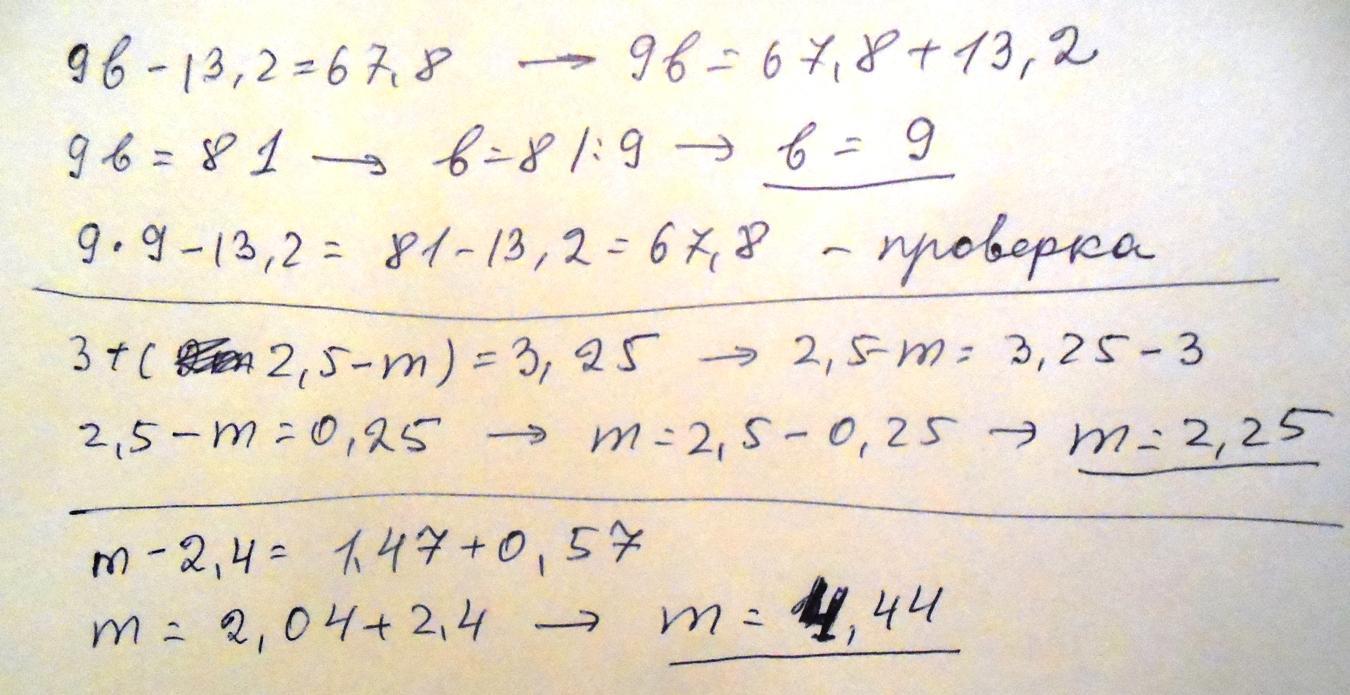 9в - 13,2 = 67,8 → 9в = 67,8 + 13,2
9в = 81 → в = 81 : 9 → в = 9
9 · 9 - 13,2 = 81 - 13,2 = 67,8 - проверка
3 + (2,5 - m) = 3,25 → 2,5 - m = 3,25 - 3
2,5 - m = 0,25 → m = 2,5 - 0,25 → m = 2,25
m - 2,4 = 1,47 + 0,57
m = 2,04 + 2,4 → m = 4,44